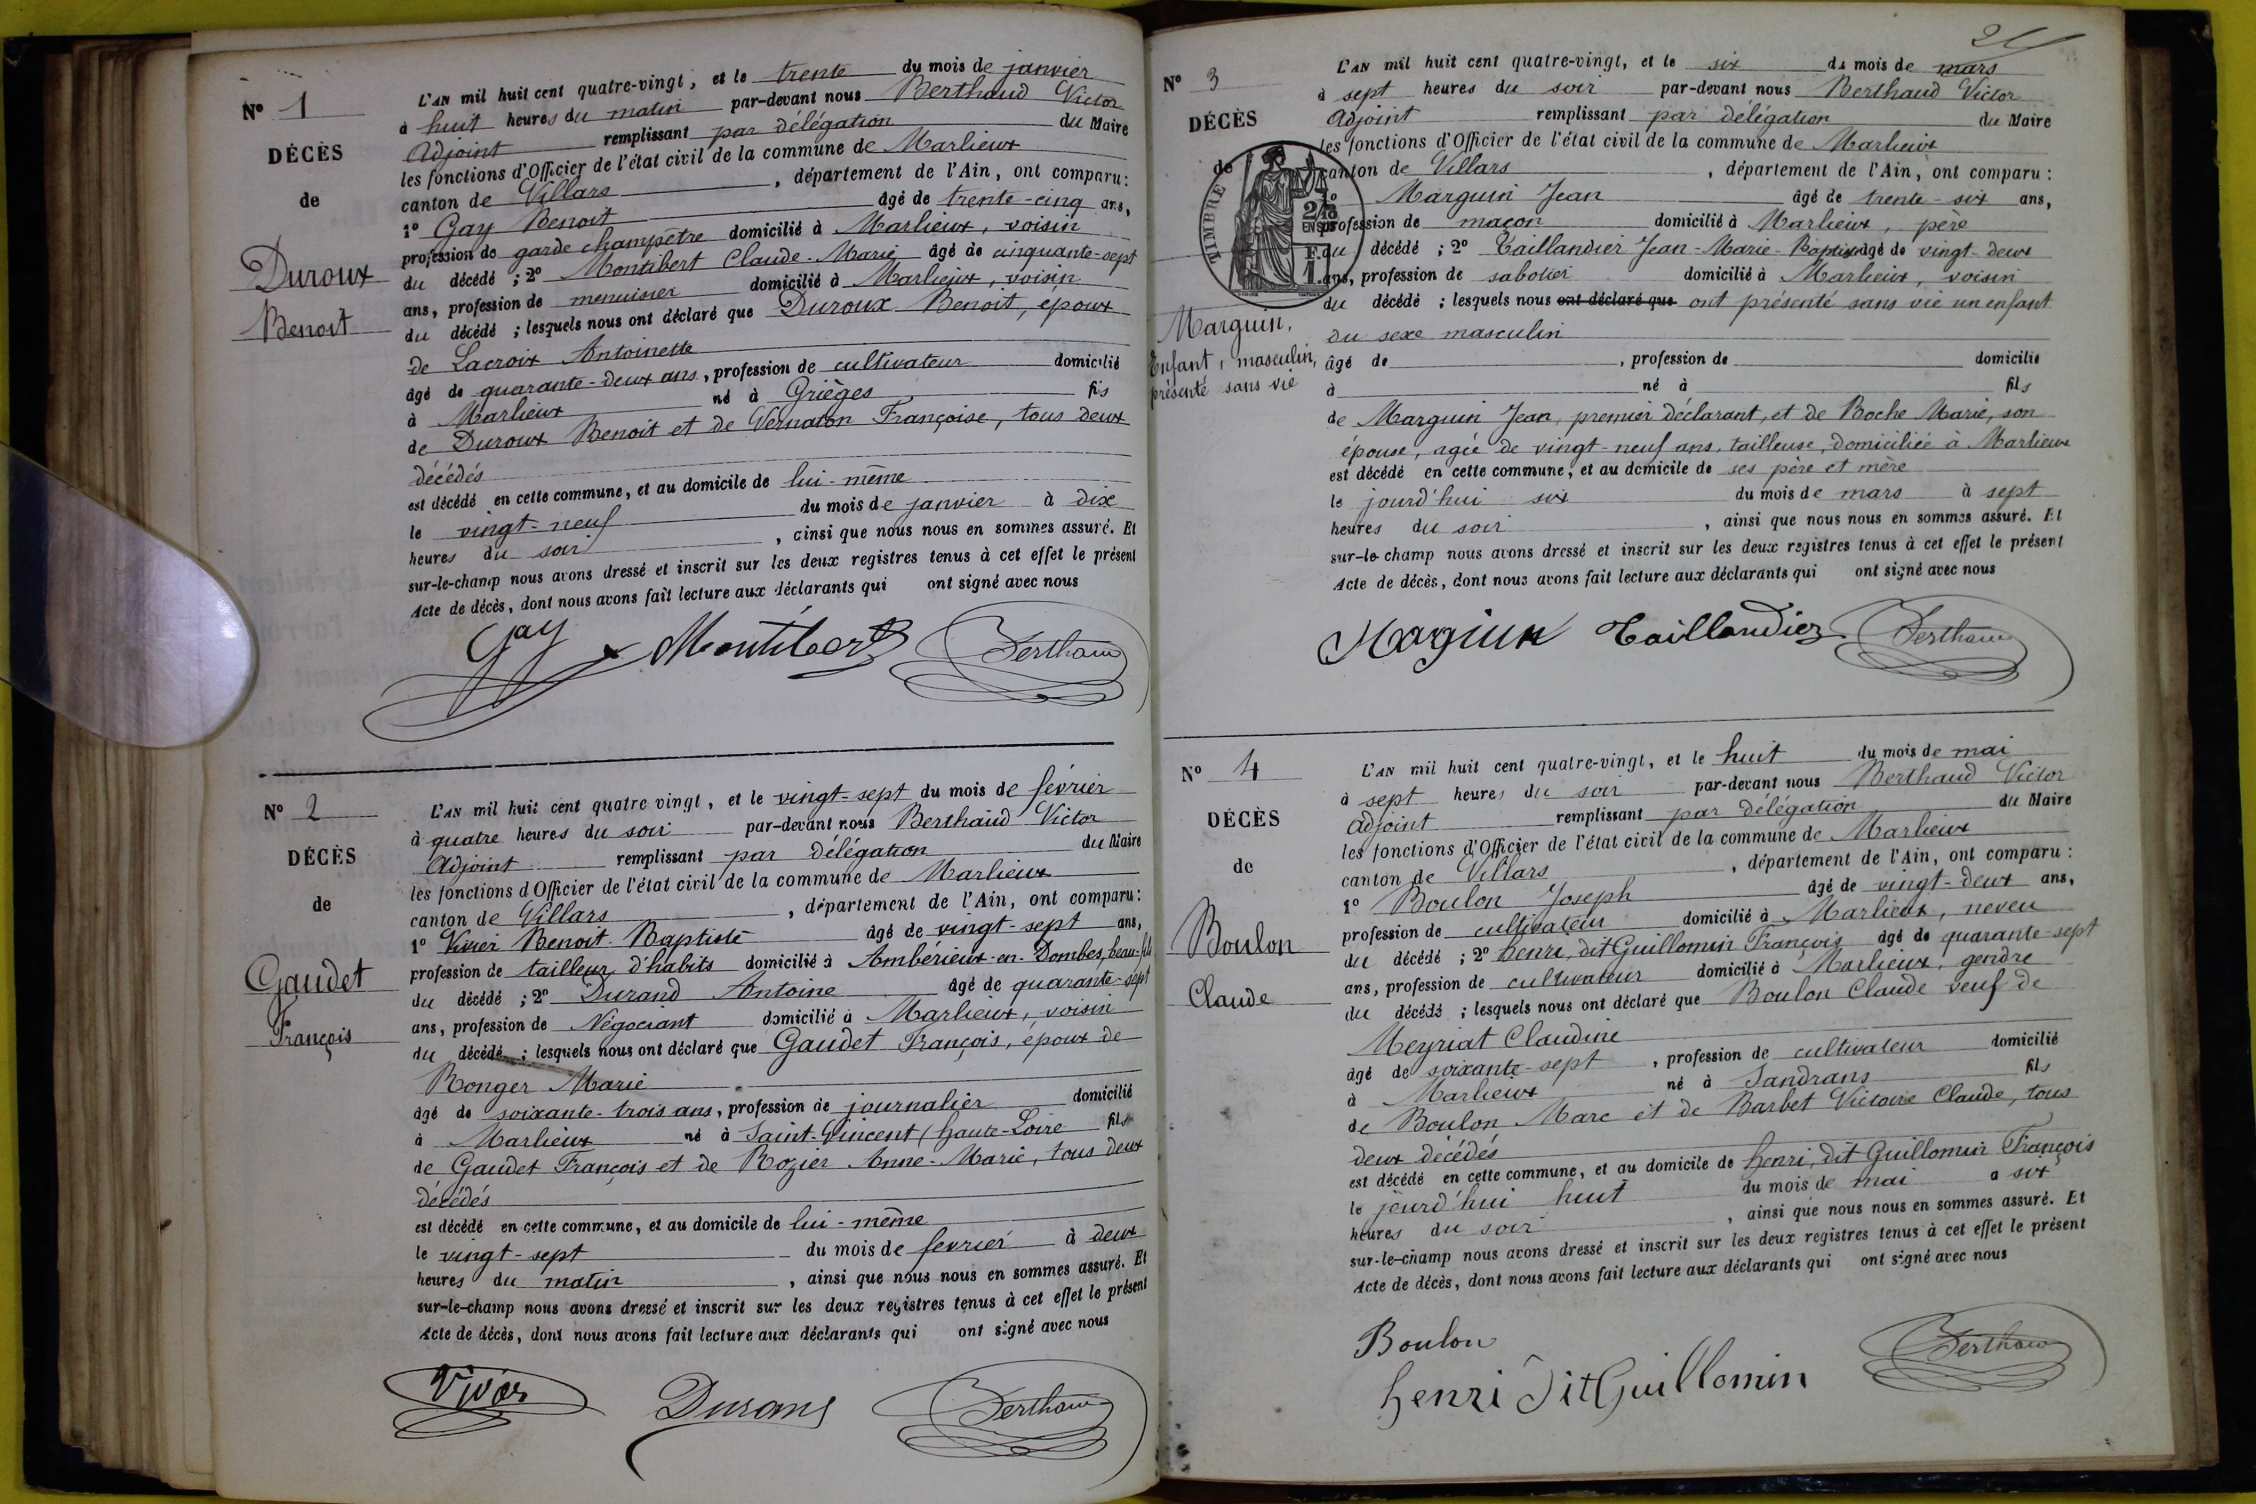 N° 1
DÉCÈS
de
Duroux
Benoit
L'AN mil huit cent quatre-vingt, et le trente du mois de janvier
à huit heures du matin par-devant nous Berthaud Victor
Adjoint remplissant par délégation du Maire
les fonctions d'Officier de l'état civil de la commune de Marlieux
canton de Villars, département de l'Ain, ont comparu :
1° Gay Benoit âgé de trente-cinq ans,
profession de garde champêtre domicilié à Marlieux, voisin
du décédé ; 2° Montibert Claude-Marie âgé de cinquante-sept
ans, profession de menuisier domicilié à Marlieux, voisin
du décédé ; lesquels nous ont déclaré que Duroux Benoit, époux
de Lacroix Antoinette
âgé de quarante-deux ans, profession de cultivateur domicilié
à Marlieux né à Grièges fils
de Duroux Benoit et de Vernaton Françoise, tous deux
décédés
est décédé en cette commune, et au domicile de lui-même
le vingt-neuf du mois de janvier à dix
heures du soir, ainsi que nous nous en sommes assuré. Et
sur-le-champ nous avons dressé et inscrit sur les deux registres tenus à cet effet le présent
Acte de décès, dont nous avons fait lecture aux déclarants qui ont signé avec nous
Gay Montibert Berthaud
N° 2
DÉCÈS
de
Gaudet
François
L'AN mil huit cent quatre vingt, et le vingt-sept du mois de février
à quatre heures du soir par-devant nous Berthaud Victor
Adjoint remplissant par délégation du Maire
les fonctions d'Officier de l'état civil de la commune de Marlieux
canton de Villars, département de l'Ain, ont comparu :
1° Vivier Benoit-Baptiste âgé de vingt-sept ans,
profession de tailleur d'habits domicilié à Ambérieux-en-Dombes, beau-fils
du décédé ; 2° Durand Antoine âgé de quarante-sept
ans, profession de Négociant domicilié à Marlieux, voisin
du décédé ; lesquels nous ont déclaré que Gaudet François, époux de
Ronger Marie
âgé de soixante-trois ans, profession de journalier domicilié
à Marlieux né à Saint-Vincent (haute-Loire fils
de Gaudet François et de Rozier Anne-Marie, tous deux
décédés
est décédé en cette commune, et au domicile de lui-même
le vingt-sept du mois de février à deux
heures du matin, ainsi que nous nous en sommes assuré. Et
sur-le-champ nous avons dressé et inscrit sur les deux registres tenus à cet effet le présent
Acte de décès, dont nous avons fait lecture aux déclarants qui ont signé avec nous
Durand Berthaud
N° 3
DÉCÈS
de
TIMBRE
Marguin,
Enfant, masculin,
présenté sans vie
L'AN mil huit cent quatre-vingt, et le six du mois de mars
à sept heures du soir par-devant nous Berthaud Victor
Adjoint remplissant par délégation du Maire
les fonctions d'Officier de l'état civil de la commune de Marlieux
canton de Villars, département de l'Ain, ont comparu :
1° Marguin Jean âgé de trente-six ans,
profession de maçon domicilié à Marlieux, père
du décédé ; 2° Taillandier Jean-Marie-Baptiste âgé de vingt-deux
ans, profession de sabotier domicilié à Marlieux, voisin
du décédé ; lesquels nous ont déclaré que ont présenté sans vie un enfant
du sexe masculin
âgé de , profession de domicilié
à né à fils
de Marguin Jean, premier déclarant, et de Roche Marie, son
épouse, agée de vingt-neuf ans, tailleuse, domiciliée à Marlieux
est décédé en cette commune, et au domicile de ses père et mère
le jourd'hui six du mois de mars à sept
heures du soir, ainsi que nous nous en sommes assuré. Et
sur-le-champ nous avons dressé et inscrit sur les deux registres tenus à cet effet le présent
Acte de décès, dont nous avons fait lecture aux déclarants qui ont signé avec nous
Marguin Taillandier Berthaud
N° 4
DÉCÈS
de
Boulon
Claude
L'AN mil huit cent quatre-vingt, et le huit du mois de mai
à sept heures du soir par-devant nous Berthaud Victor
Adjoint remplissant par délégation du Maire
les fonctions d'Officier de l'état civil de la commune de Marlieux
canton de Villars, département de l'Ain, ont comparu :
1° Boulon Joseph âgé de vingt-deux ans,
profession de cultivateur domicilié à Marlieux, neveu
du décédé ; 2° henri, dit Guillomin François âgé de quarante-sept
ans, profession de cultivateur domicilié à Marlieux, gendre
du décédé ; lesquels nous ont déclaré que Boulon Claude veuf de
Meyriat Claudine
âgé de soixante-sept, profession de cultivateur domicilié
à Marlieux né à Sandrans fils
de Boulon Marc et de Barbet Victoire Claude, tous
deux décédés
est décédé en cette commune, et au domicile de henri, dit Guillomin François
le jourd'hui huit du mois de mai à six
heures du soir, ainsi que nous nous en sommes assuré. Et
sur-le-champ nous avons dressé et inscrit sur les deux registres tenus à cet effet le présent
Acte de décès, dont nous avons fait lecture aux déclarants qui ont signé avec nous
Boulon
henri dit Guillomin Berthaud